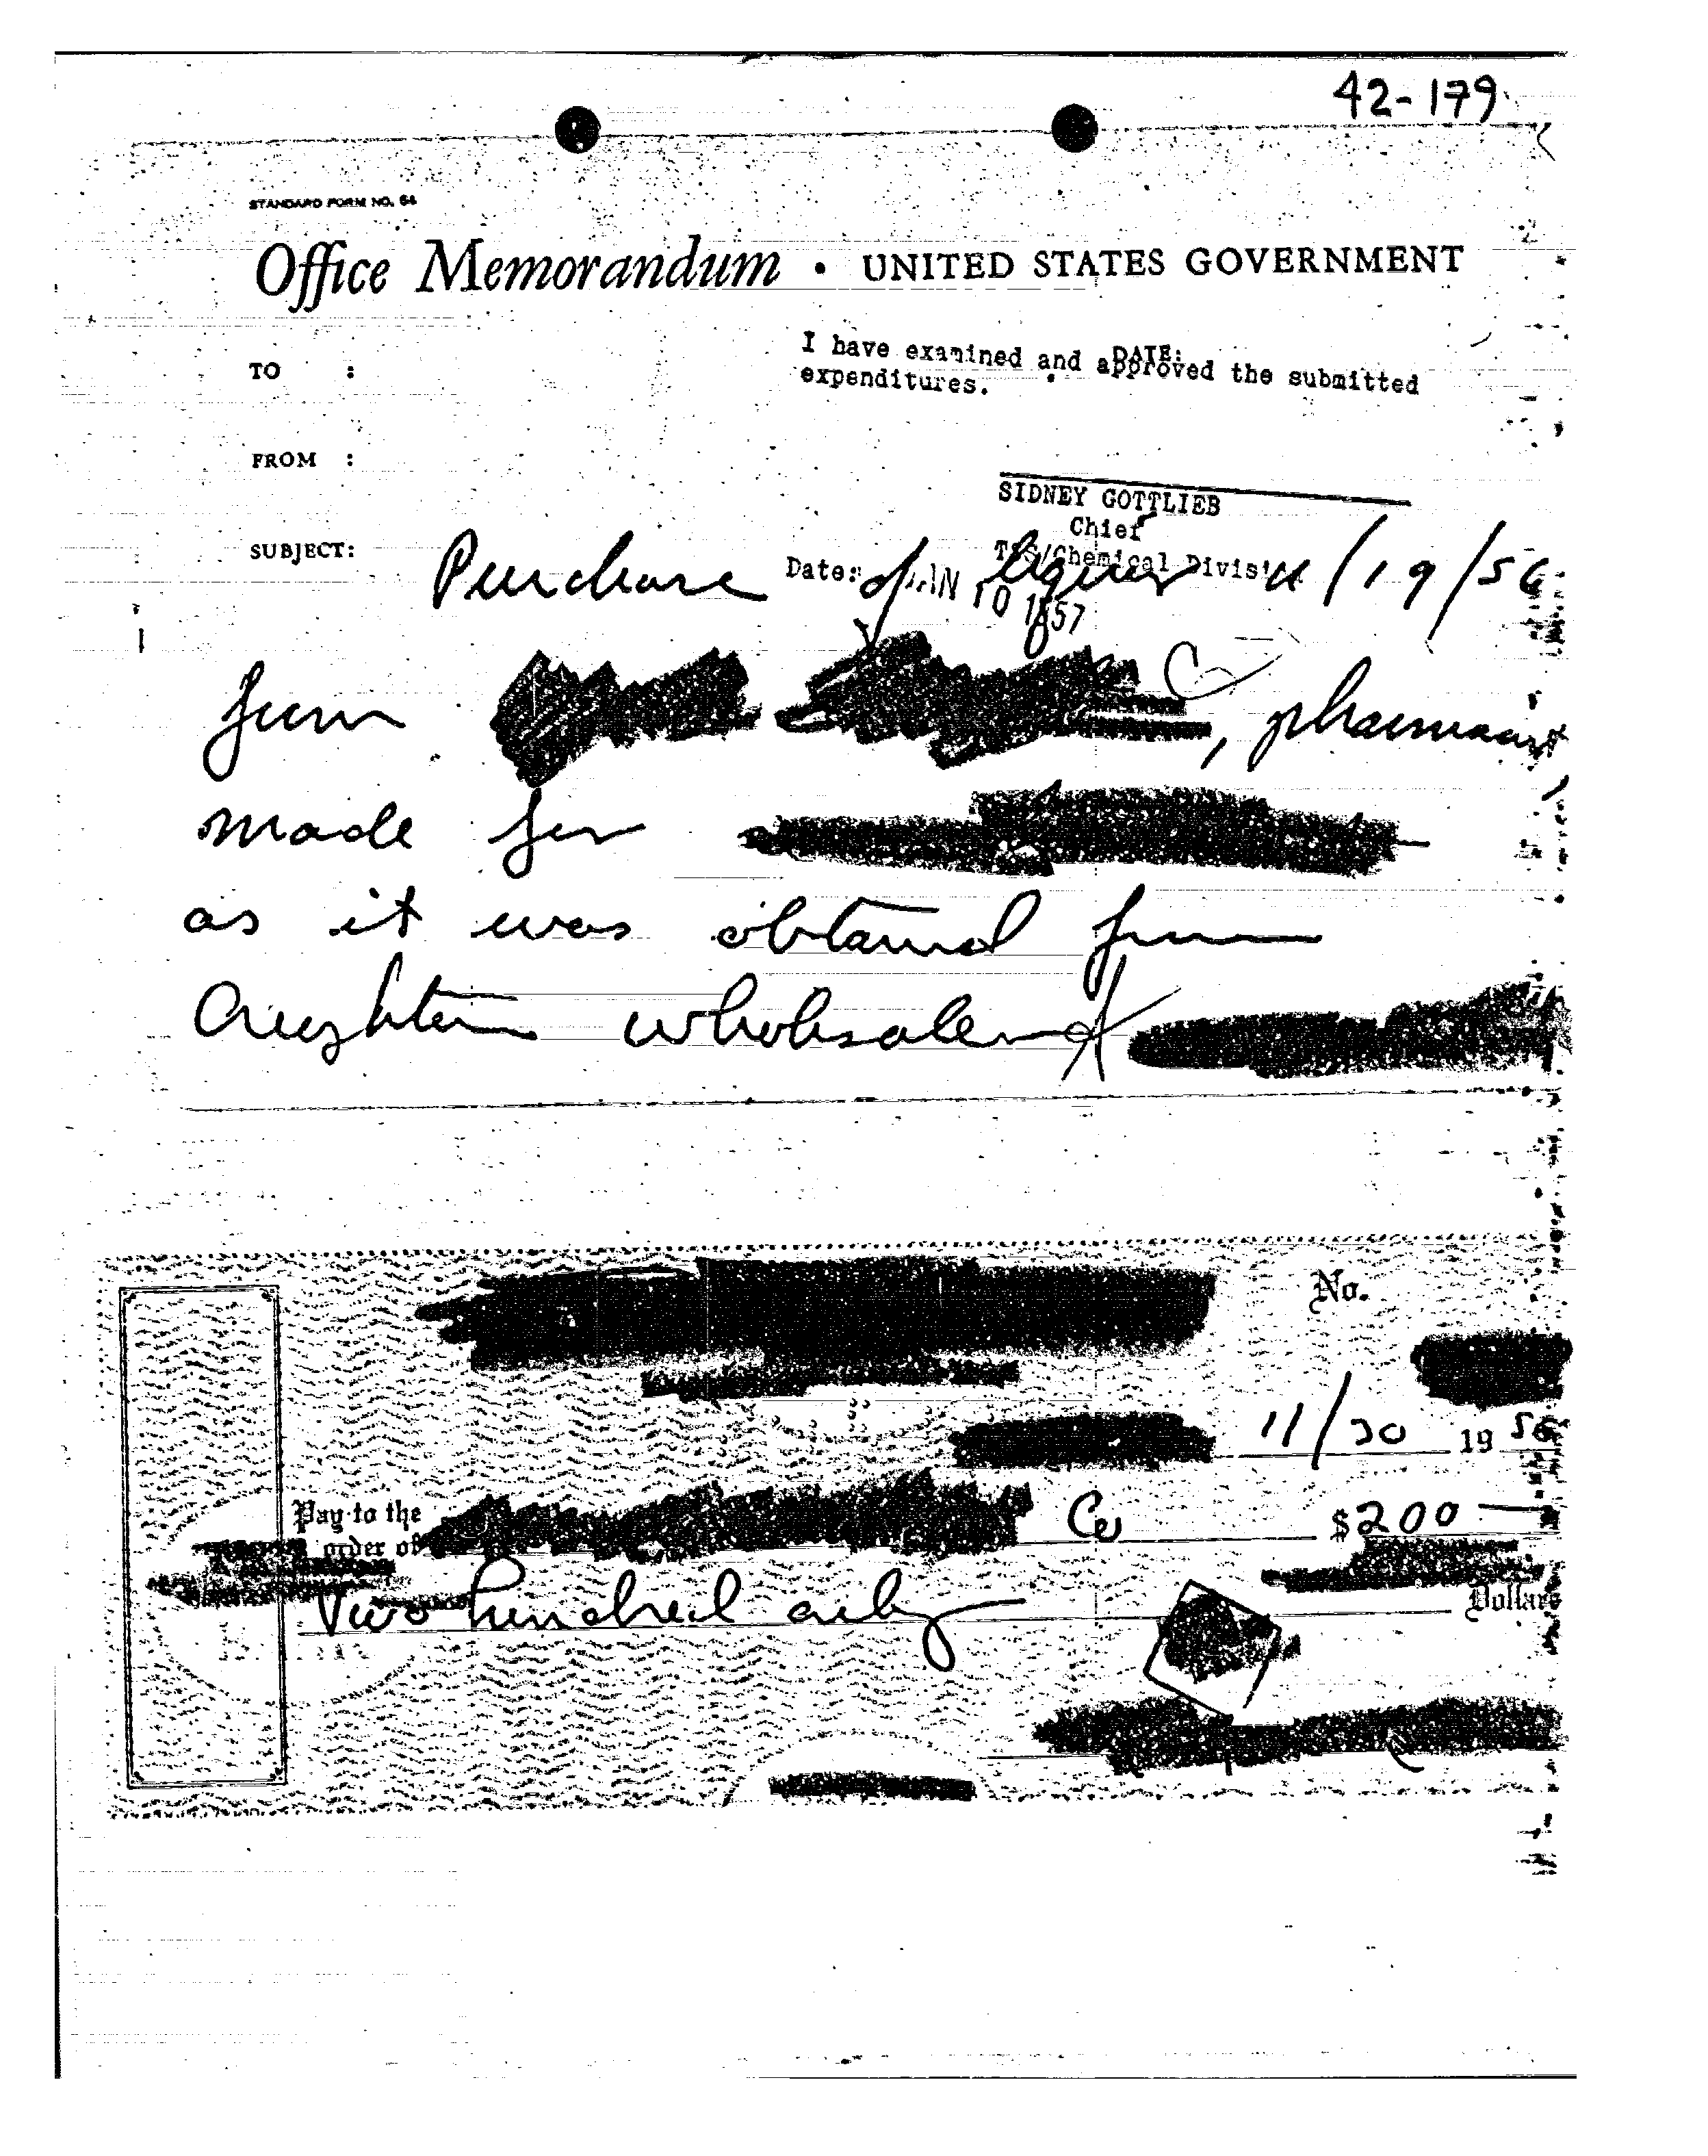 42-179
STANDARD FORM NO. 64
Office Memorandum • UNITED STATES GOVERNMENT
I have examined and approved the submitted
expenditures.
DATE:
TO :
FROM :
SIDNEY GOTTLIEB
Chief
TSS/Chemical Division
Date: JAN 10 1957
SUBJECT: Purchase of liquor 11/19/56
from , pharmacist
made for
as it was obtained from
wholesaler
No.
11/30 1956
Pay to the
order of Co $200
Two hundred only Dollars